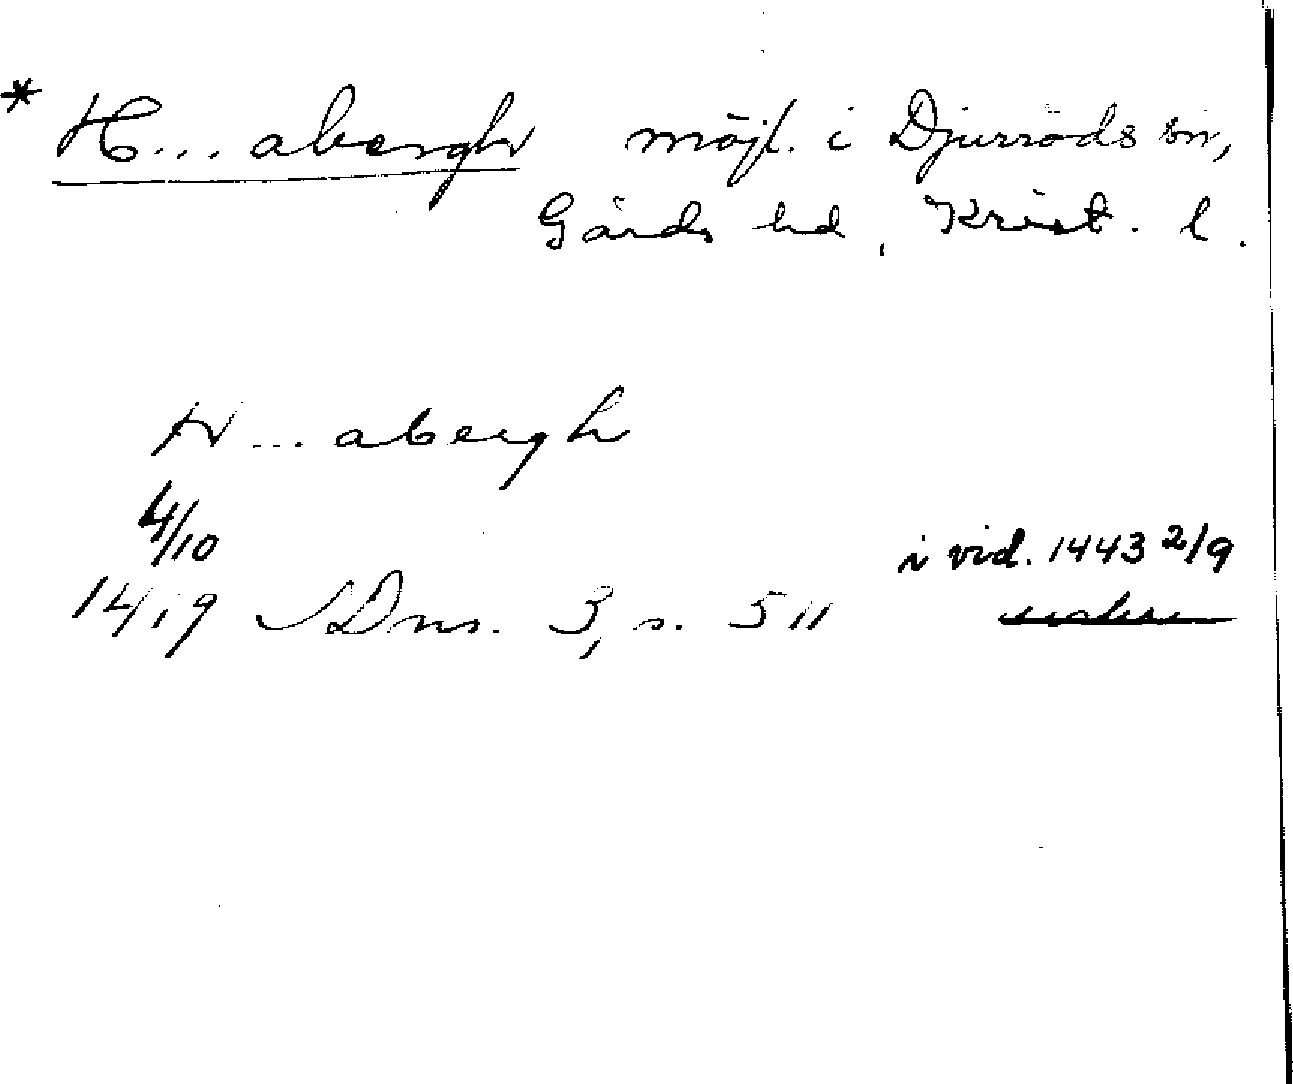 * H...abergh möjl. i Djurröds sn,
Gärds hd, Krist. l.
H...abergh
4/10
1419 SDns. 3, s. 511
i vid. 1443 2/9